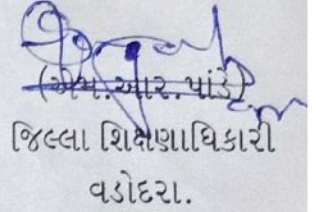 (એમ.આર.પાંડે)
જિલ્લા શિક્ષણાધિકારી
વડોદરા.